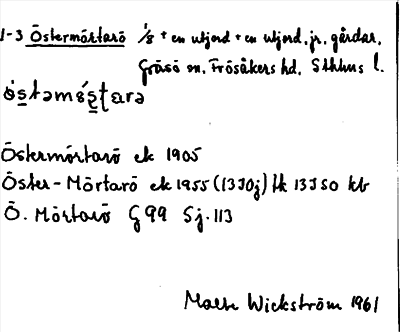 1-3 Östermörtarö 1/8 + en utjord + en utjord, jr, gårdar,
Gräsö sn, Frösåkers hd, Sthlms l.
Östermörtarö ek 1905
Öster-Mörtarö ek 1955 (13J0j) tk 13J S0 kb
Ö. Mörtarö G 99 Sj. 113
Malte Wickström 1961